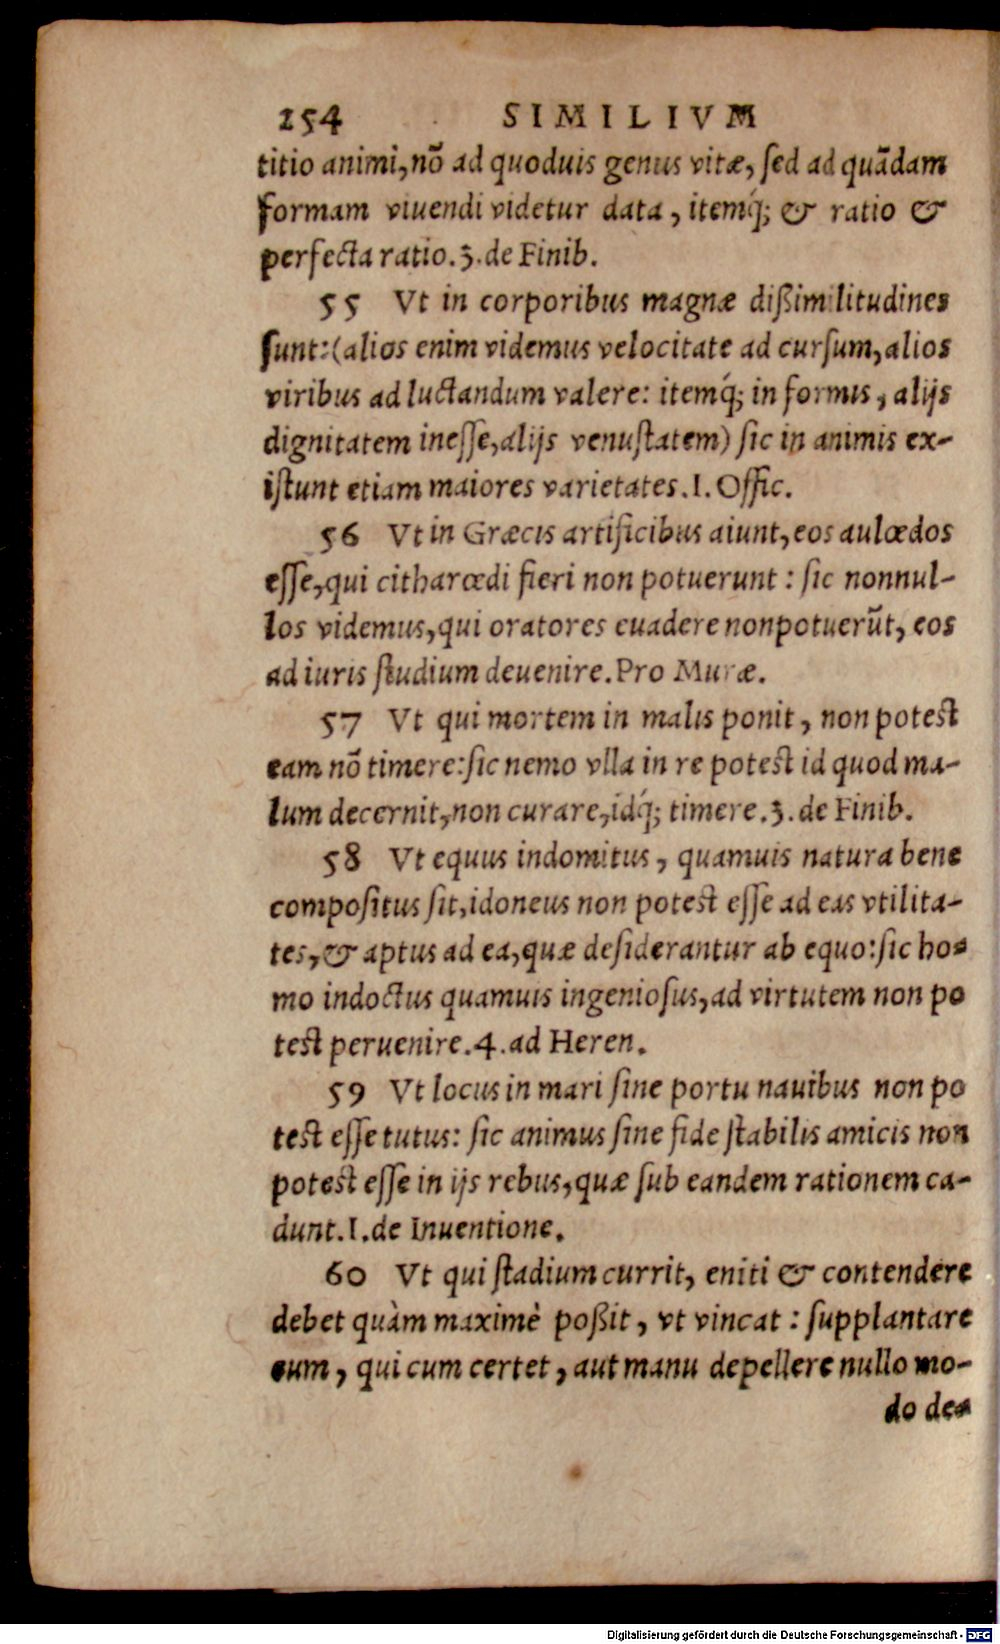 254 SIMILIVM
titio animi, nõ ad quoduis genus vitæ, ſed ad quãdam
formam viuendi videtur data, itemq́; & ratio &
perfecta ratio. 3. de Finib.
55 Vt in corporibus magnæ dißimilitudines
ſunt: (alios enim videmus velocitate ad curſum, alios
viribus ad luctandum valere: itemq́; in formis, alijs
dignitatem ineſſe, alijs venuſtatem) ſic in animis ex-
iſtunt etiam maiores varietates. I. Offic.
56 Vt in Græcis artificibus aiunt, eos aulœdos
eſſe, qui citharœdi fieri non potuerunt : ſic nonnul-
los videmus, qui oratores euadere non potuerũt, eos
ad iuris ſtudium deuenire. Pro Muræ.
57 Vt qui mortem in malis ponit, non poteſt
eam nõ timere: ſic nemo vlla in re poteſt id quod ma-
lum decernit, non curare, idq́; timere. 3. de Finib.
58 Vt equus indomitus, quamuis natura bene
compoſitus ſit, idoneus non poteſt eſſe ad eas vtilita-
tes, & aptus ad ea, quæ deſiderantur ab equo: ſic ho-
mo indoctus quamuis ingenioſus, ad virtutem non po
teſt peruenire. 4. ad Heren.
59 Vt locus in mari ſine portu nauibus non po
teſt eſſe tutus: ſic animus ſine fide ſtabilis amicis non
poteſt eſſe in ijs rebus, quæ ſub eandem rationem ca-
dunt. I. de Inuentione.
60 Vt qui ſtadium currit, eniti & contendere
debet quàm maximè poßit, vt vincat : ſupplantare
eum, qui cum certet, aut manu depellere nullo mo-
do de-
Digitalisierung gefördert durch die Deutsche Forschungsgemeinschaft - DFG